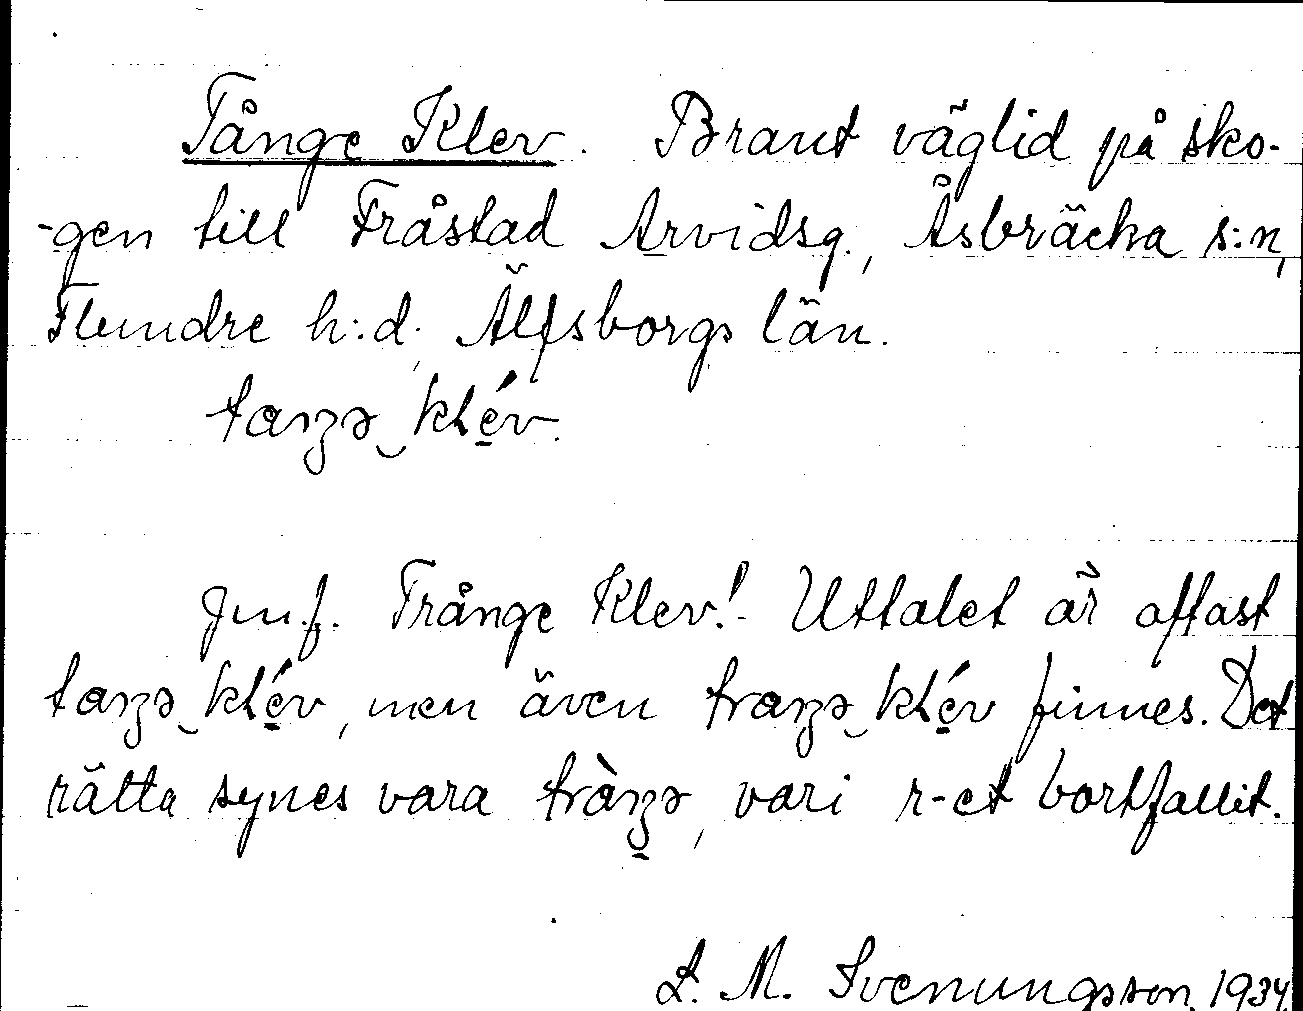 Tånge Klev. Brant väglid på sko-
-gen till Fråstad Arvidsg., Åsbräcka s:n,
Flundre h:d, Älfsborgs län.
taŋə‿klév.
Jmf. Trånge Klev! Uttalet är oftast
taŋə‿klév, men även traŋə‿klév finnes. Det
rätta synes vara tràŋə, vari r-et bortfallit.
L. M. Svenungsson, 1934.